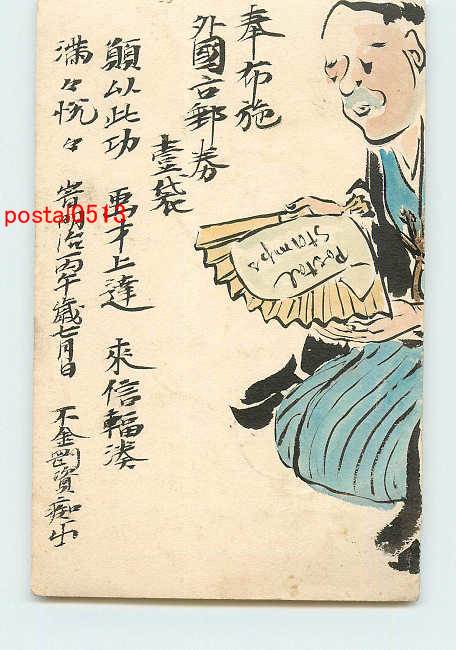 奉布施
外國古郵券
壹袋
願以此功 画才上達 來信輻湊
満々悦々
明治丙午歳七月日
不金岡資痴生
Postal
Stamps
postal0513